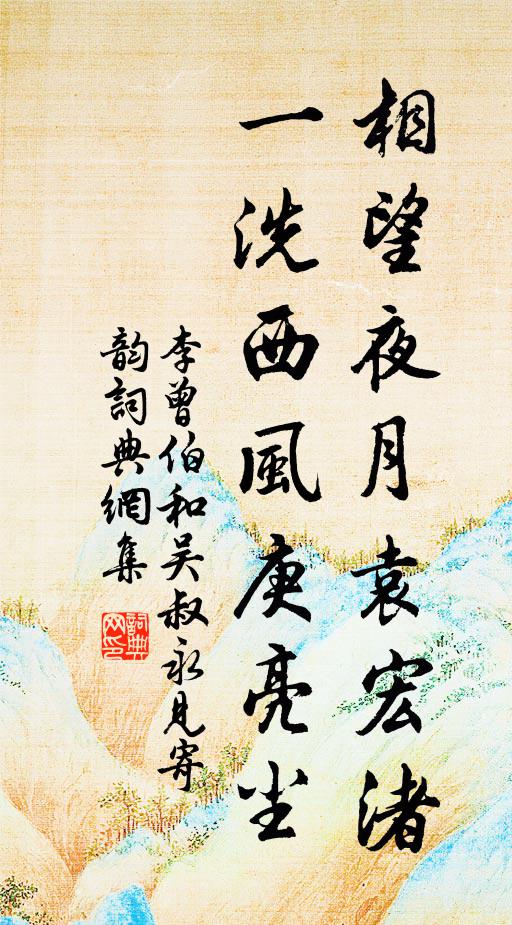 相望夜月袁宏渚
一洗西風庾亮尘
李曾伯和吴叔永見寄
韵詞典網集
詞典
网印